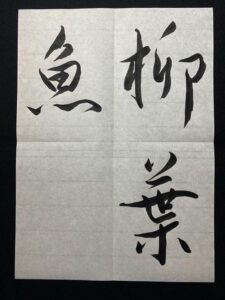 柳葉
魚